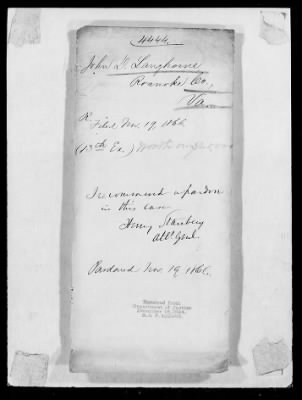 4444
John T. Langhorne
Roanoke Co,
Va
R.
Filed Nov. 19, 1866
(13th Ex.) Worth over $20000
I recommend a pardon
in this case
Henry Stanbery
Att. Genl.
Pardoned Nov 19 1866.
Received from
Department of Justice